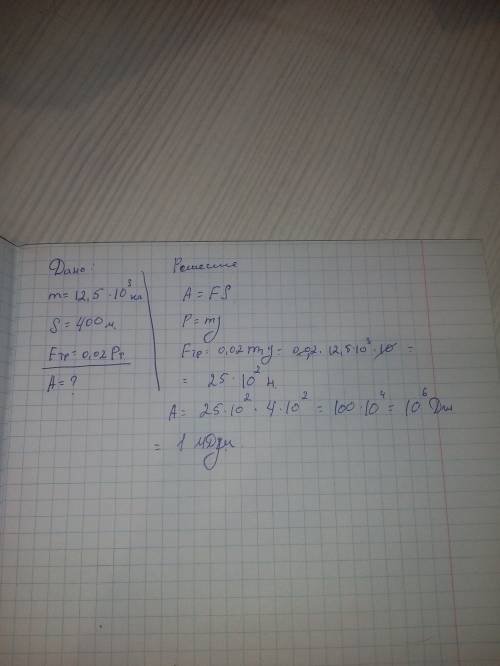 Дано:
m = 12,5 · 10³ кг
S = 400 м.
Fтр = 0,02 Pт
A = ?
Решение
A = FS
P = mg
Fтр = 0,02 mg = 0,02 · 12,5 · 10³ · 10 =
= 25 · 10² н.
A = 25 · 10² · 4 · 10² = 100 · 10⁴ = 10⁶ Дж
= 1 МДж.